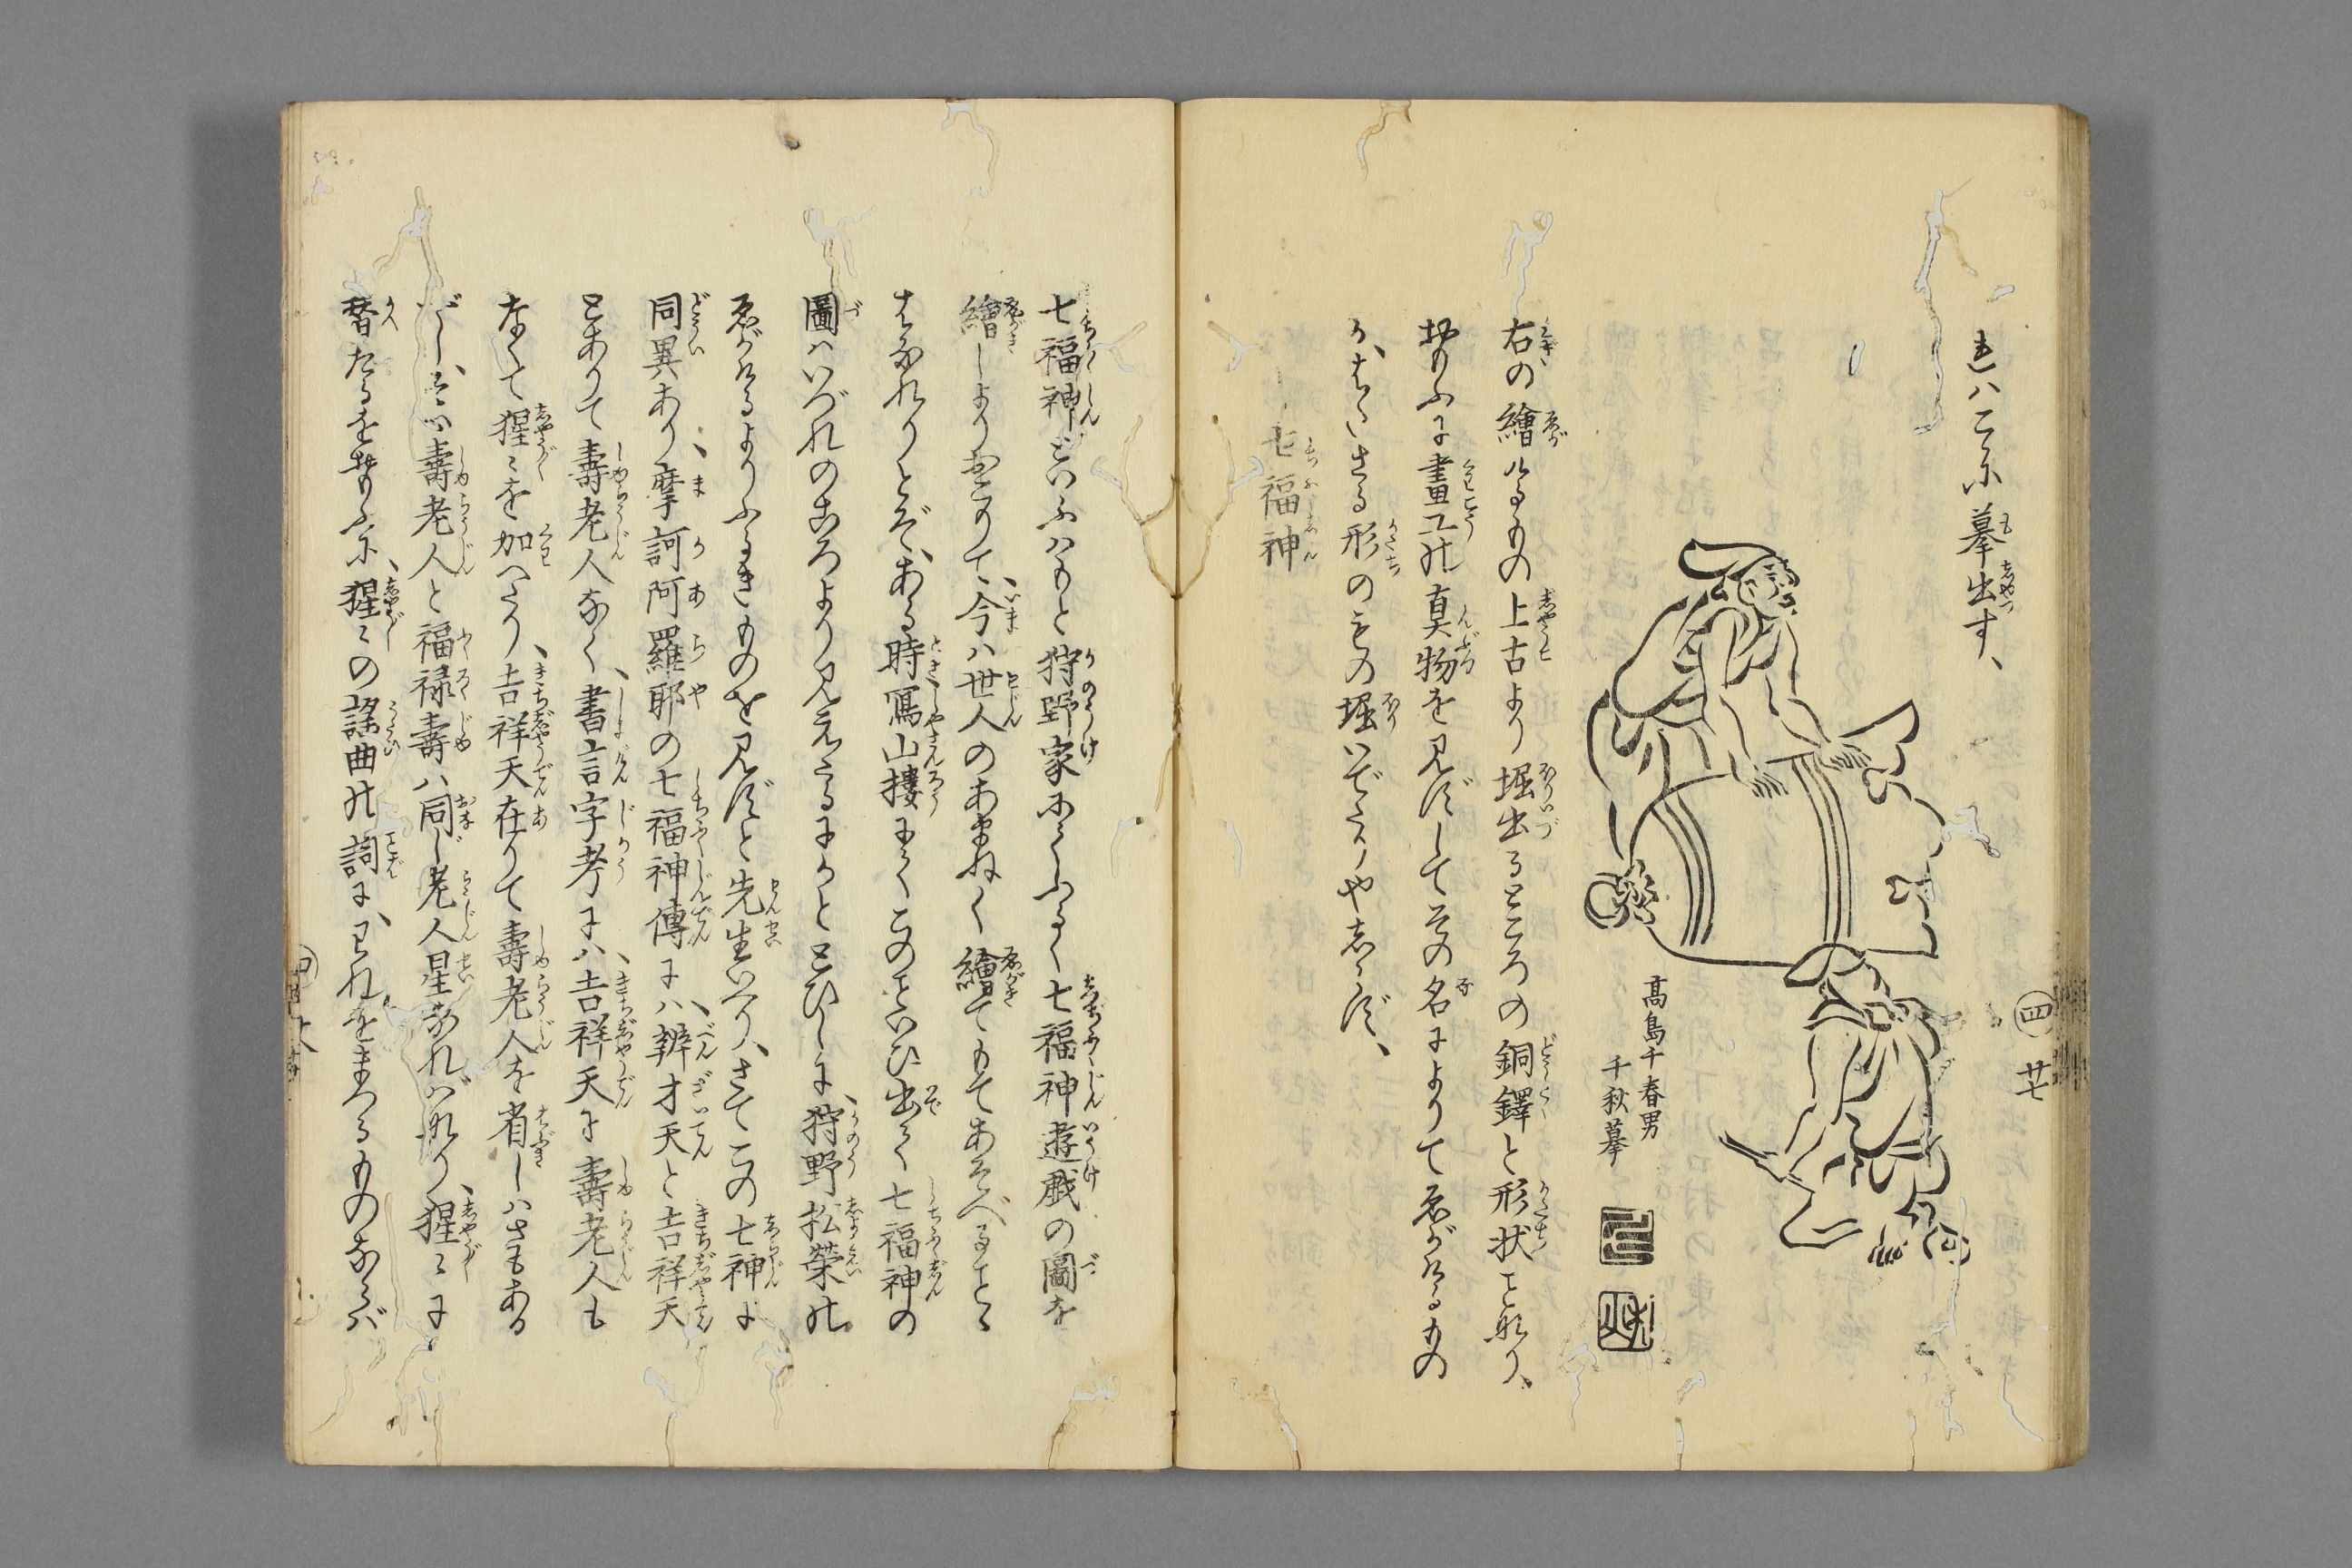 れハこゝに摹出す、
高島千春男
千秋摹
四 廿七
右の繪けるもの上古より堀出るところの銅鐸と形状こと
おもふに畫工の真物を見ずしてその名によりてゑがけるもの
か、さる形のもの堀いでたりやしらず、
七福神
七福神といふハもと狩野家にふるく七福神遊戯の圖を
繪しより今ハ世人のあまねく繪てもてあそべること
となれりとぞ、ある時寫山樓にてこのこといひ出て七福神の
圖ハいづれのころより見えたるにかととひしに、狩野松榮の
ゑがけるよりふるきものを見ずと先生いへり、さてこの七神に
同異あり、摩訶阿羅耶の七福神傳にハ、辨才天と吉祥天
とありて壽老人なく、書言字考にハ吉祥天に壽老人も
なくて猩〻を加へたり、吉祥天在りて壽老人を省しハさもある
べし、壽老人と福禄壽ハ同じ老人星なれバなり、猩〻に
替たるをおもふに、猩〻の謡曲の詞に、われをまつるものならバ